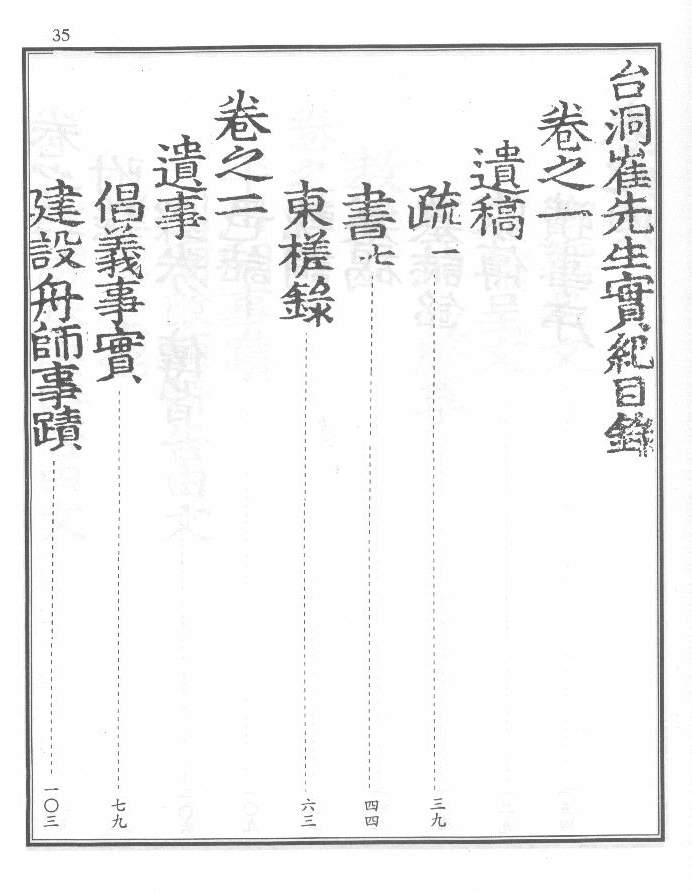 35
台洞崔先生實紀目錄
卷之一
遺稿
疏一 三九
書七 四四
東槎錄 六三
卷之二
遺事
倡義事實 七九
建設舟師事蹟 一〇三